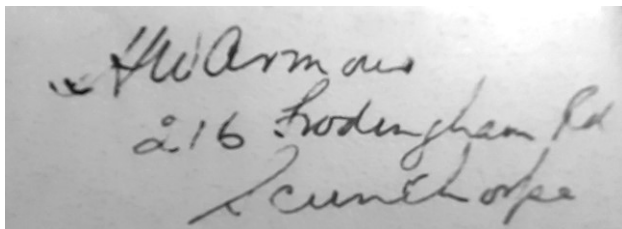 HW Armour
216 Frodingham Rd
Scunthorpe